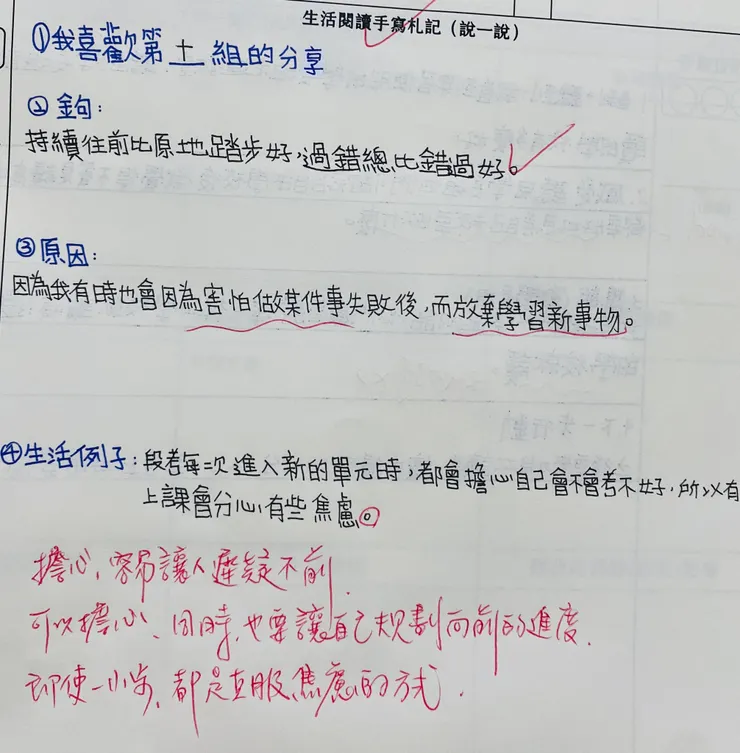 生活閱讀手寫札記（說一說）
①我喜歡第十一組的分享
②金句：
持續往前比原地踏步好，過錯總比錯過好。
③原因：
因為我有時也會因為害怕做某件事失敗後，而放棄學習新事物。
④生活例子：段考每次進入新的單元時，都會擔心自己會不會考不好，所以有
上課會分心，有些焦慮。
擔心，容易讓人遲疑不前.
可以擔心、同時，也要讓自己規劃向前的進度.
即使一小步，都是克服焦慮的方式.